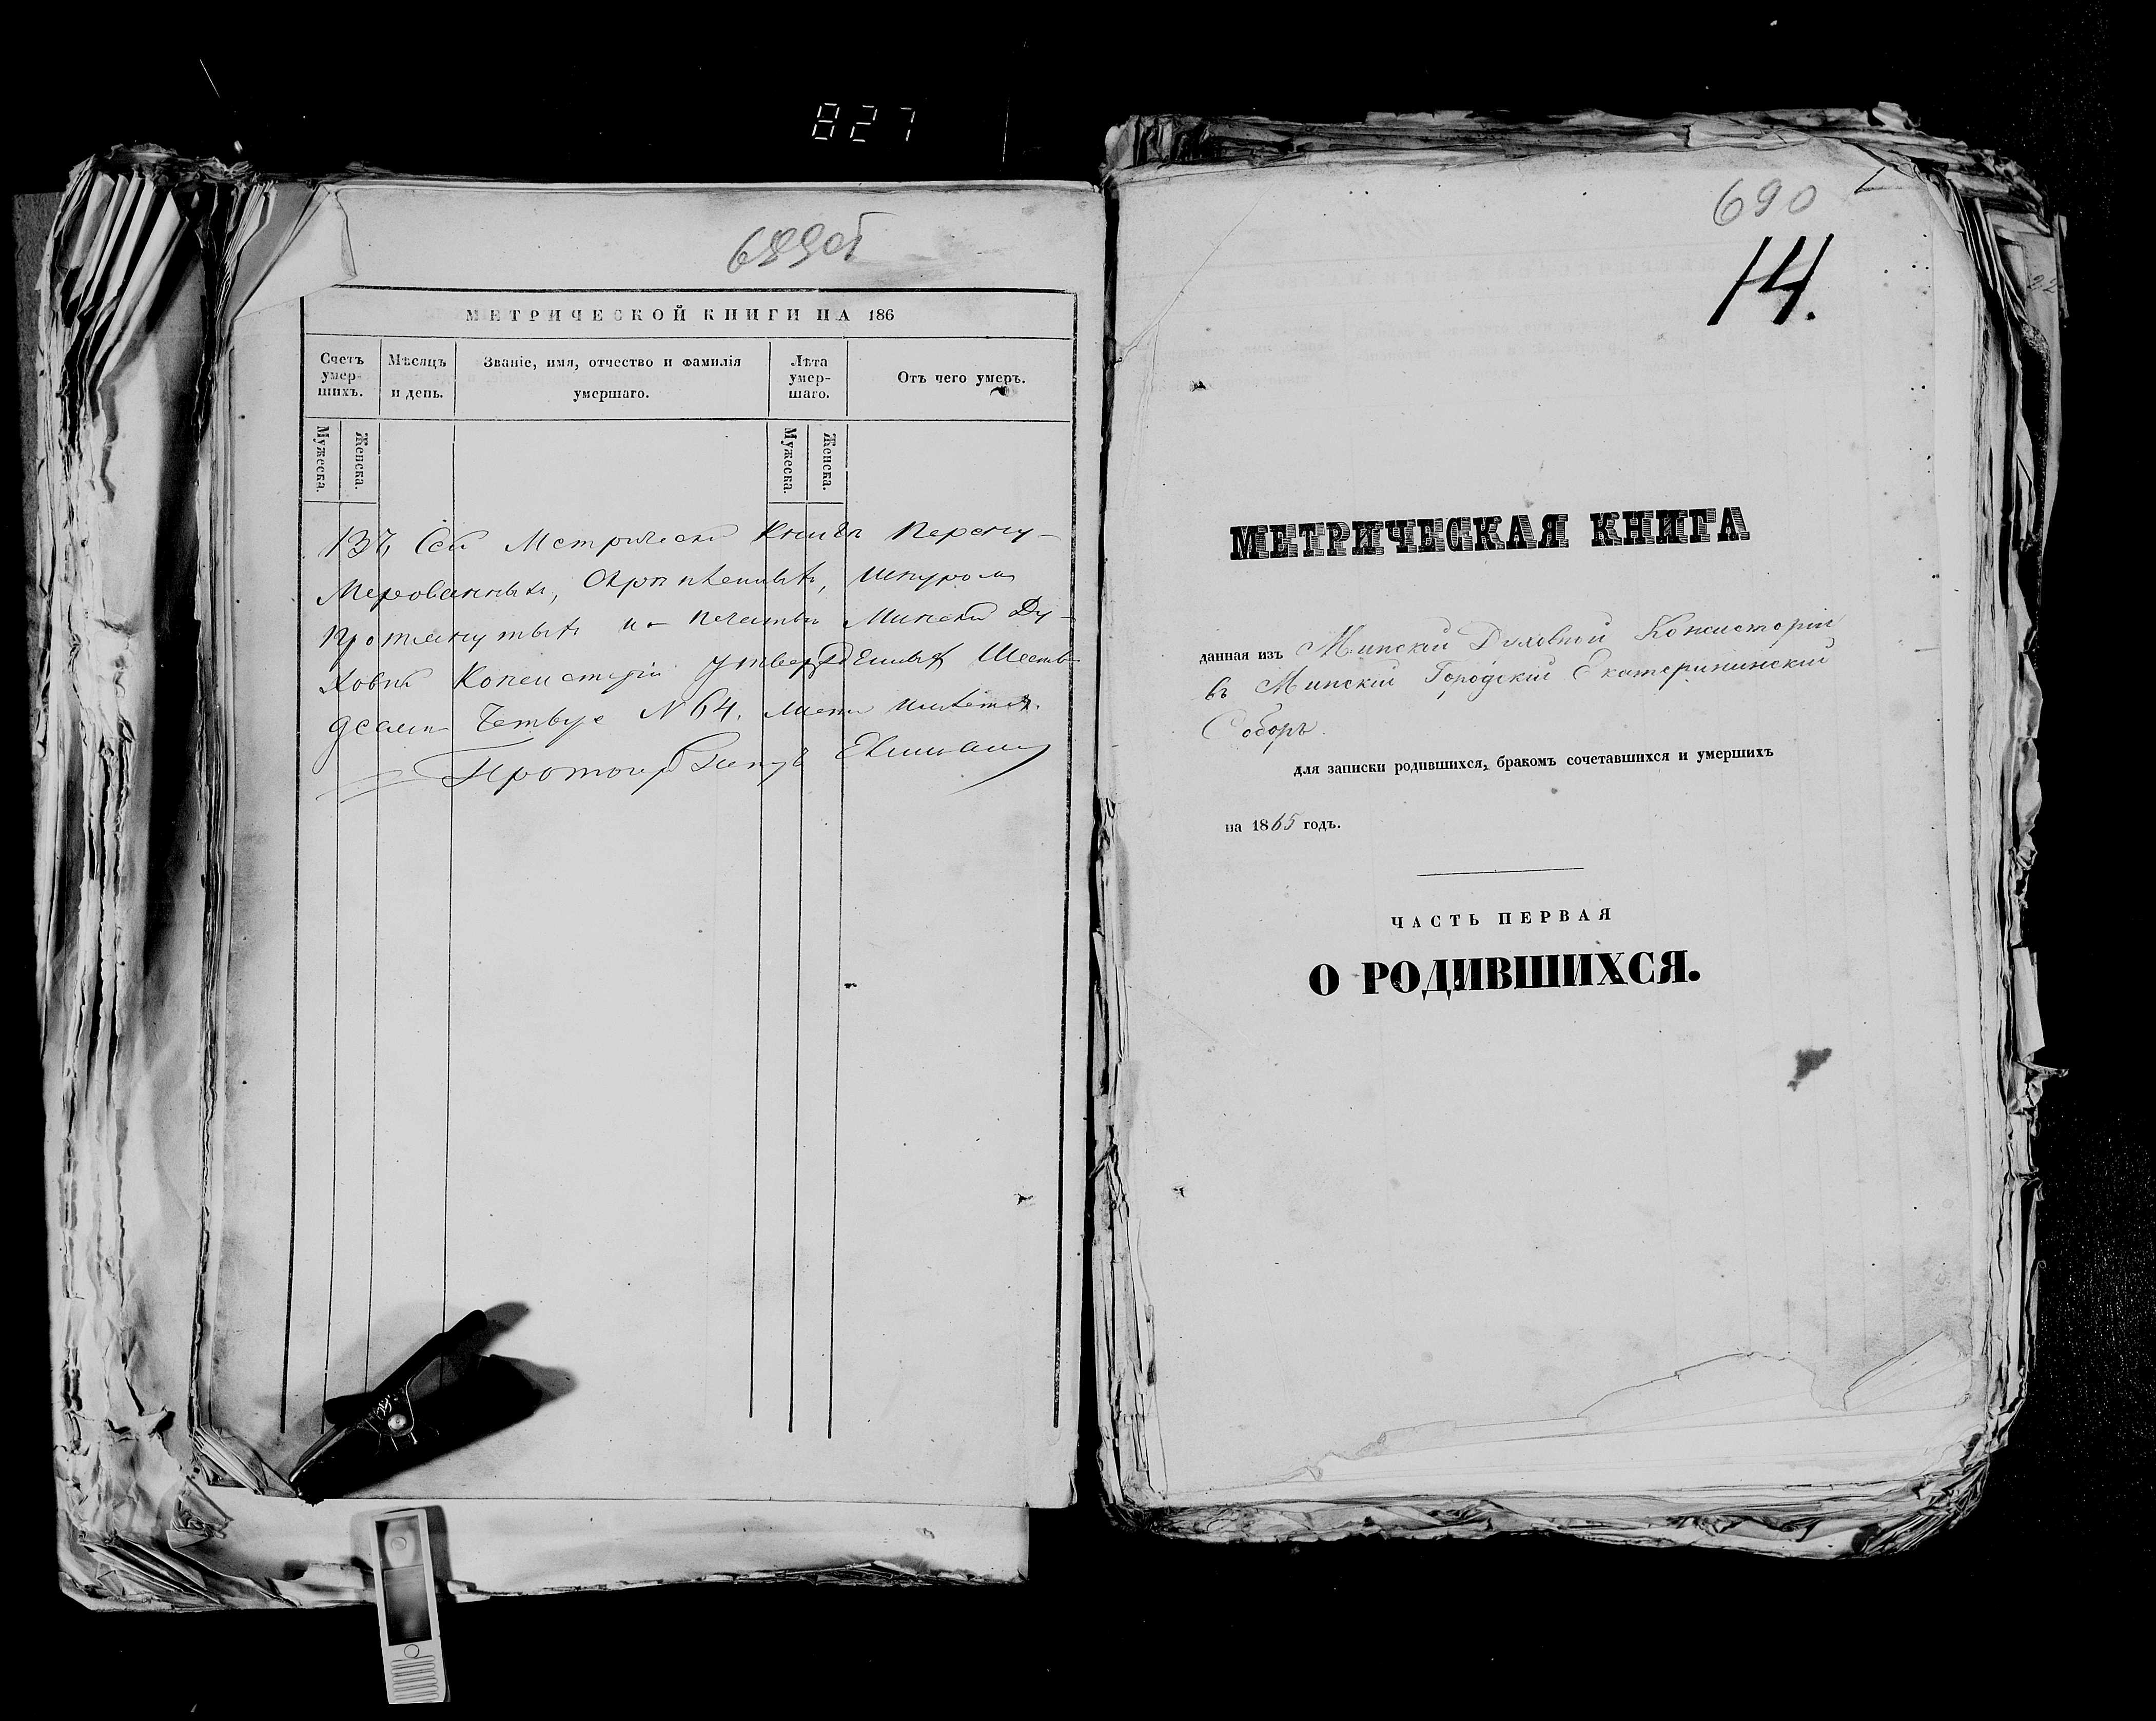 827
689об
МЕТРИЧЕСКОЙ КНИГИ НА 186
Счетъ умер-шихъ.
Мѣсяцъ и день.
Званіе, имя, отчество и фамилія умершаго.
Лѣта умер-шаго.
Отъ чего умеръ.
Мужеска.
Женска.
Мужеска.
Женска.
Въ Сей Метрической Книгѣ Перену-
мерованныхъ, Скрѣпленныхъ, шнуромъ
Протянутыхъ и печатью Минской Ду-
ховной Консисторіи утвержденныхъ Шесть-
десятъ Четыре № 64. листа имѣется.
690
14.
МЕТРИЧЕСКАЯ КНИГА
данная изъ Минской Духовной Консисторіи
въ Минскій Городскій Екатерининскій
Соборъ.
для записки родившихся, бракомъ сочетавшихся и умершихъ
на 1865 годъ.
ЧАСТЬ ПЕРВАЯ
О РОДИВШИХСЯ.